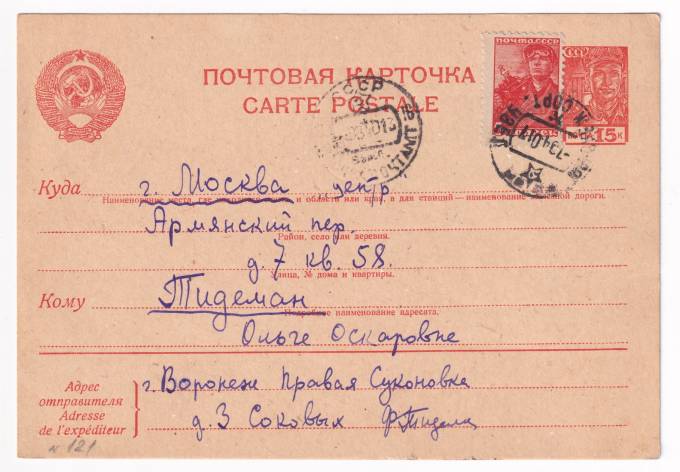 ПОЧТОВАЯ КАРТОЧКА
CARTE POSTALE
ПОЧТА СССР
СССР
15 К
СССР
ПОЧТАМТ
Куда
г. Москва центр
Наименование места, где и области или края, а для станций — наименование железной дороги.
Армянский пер.
Район, село или деревня.
д. 7 кв. 58.
Улица, № дома и квартиры.
Кому
Тидеман
Подробное наименование адресата.
Ольге Оскаровне
Адрес отправителя
Adresse de l'expéditeur
г. Воронеж Правая Суконовка
д. 3 Соковых
N. 121